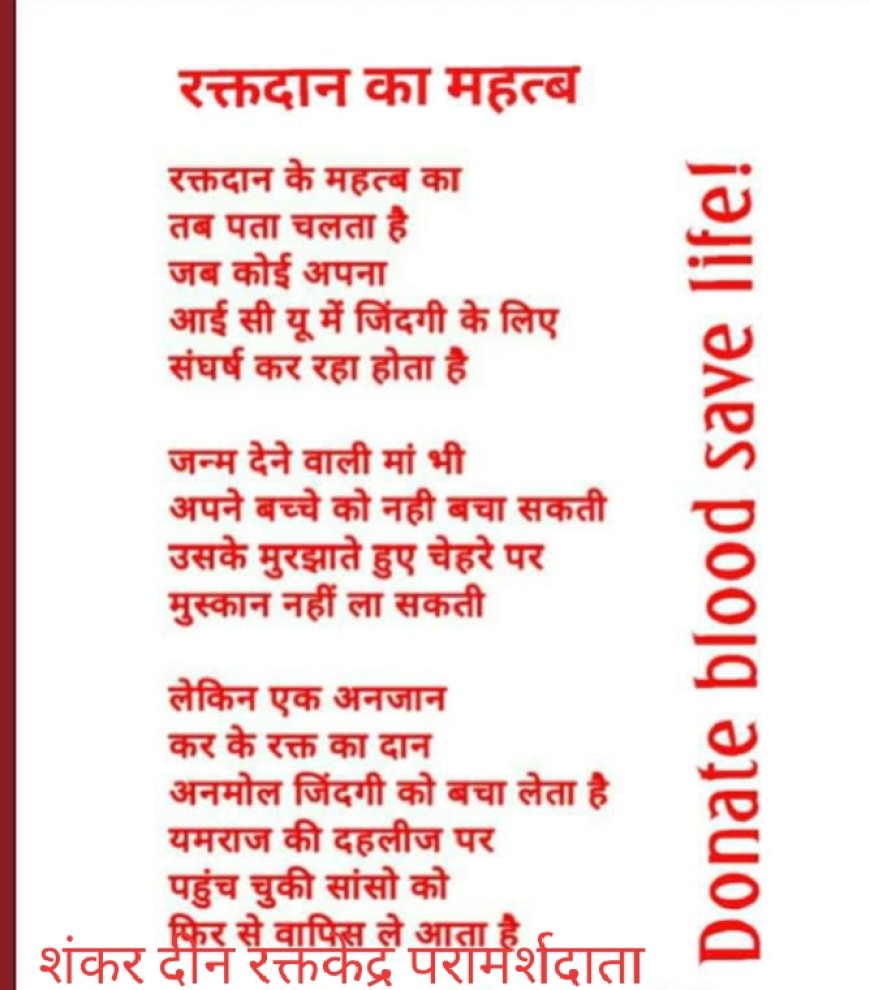 रक्तदान का महत्ब
रक्तदान के महत्ब का
तब पता चलता है
जब कोई अपना
आई सी यू में जिंदगी के लिए
संघर्ष कर रहा होता है
जन्म देने वाली मां भी
अपने बच्चे को नही बचा सकती
उसके मुरझाते हुए चेहरे पर
मुस्कान नहीं ला सकती
लेकिन एक अनजान
कर के रक्त का दान
अनमोल जिंदगी को बचा लेता है
यमराज की दहलीज पर
पहुंच चुकी सांसो को
फिर से वापिस ले आता है
शंकर दीन रक्तकेंद्र परामर्शदाता
Donate blood save life!